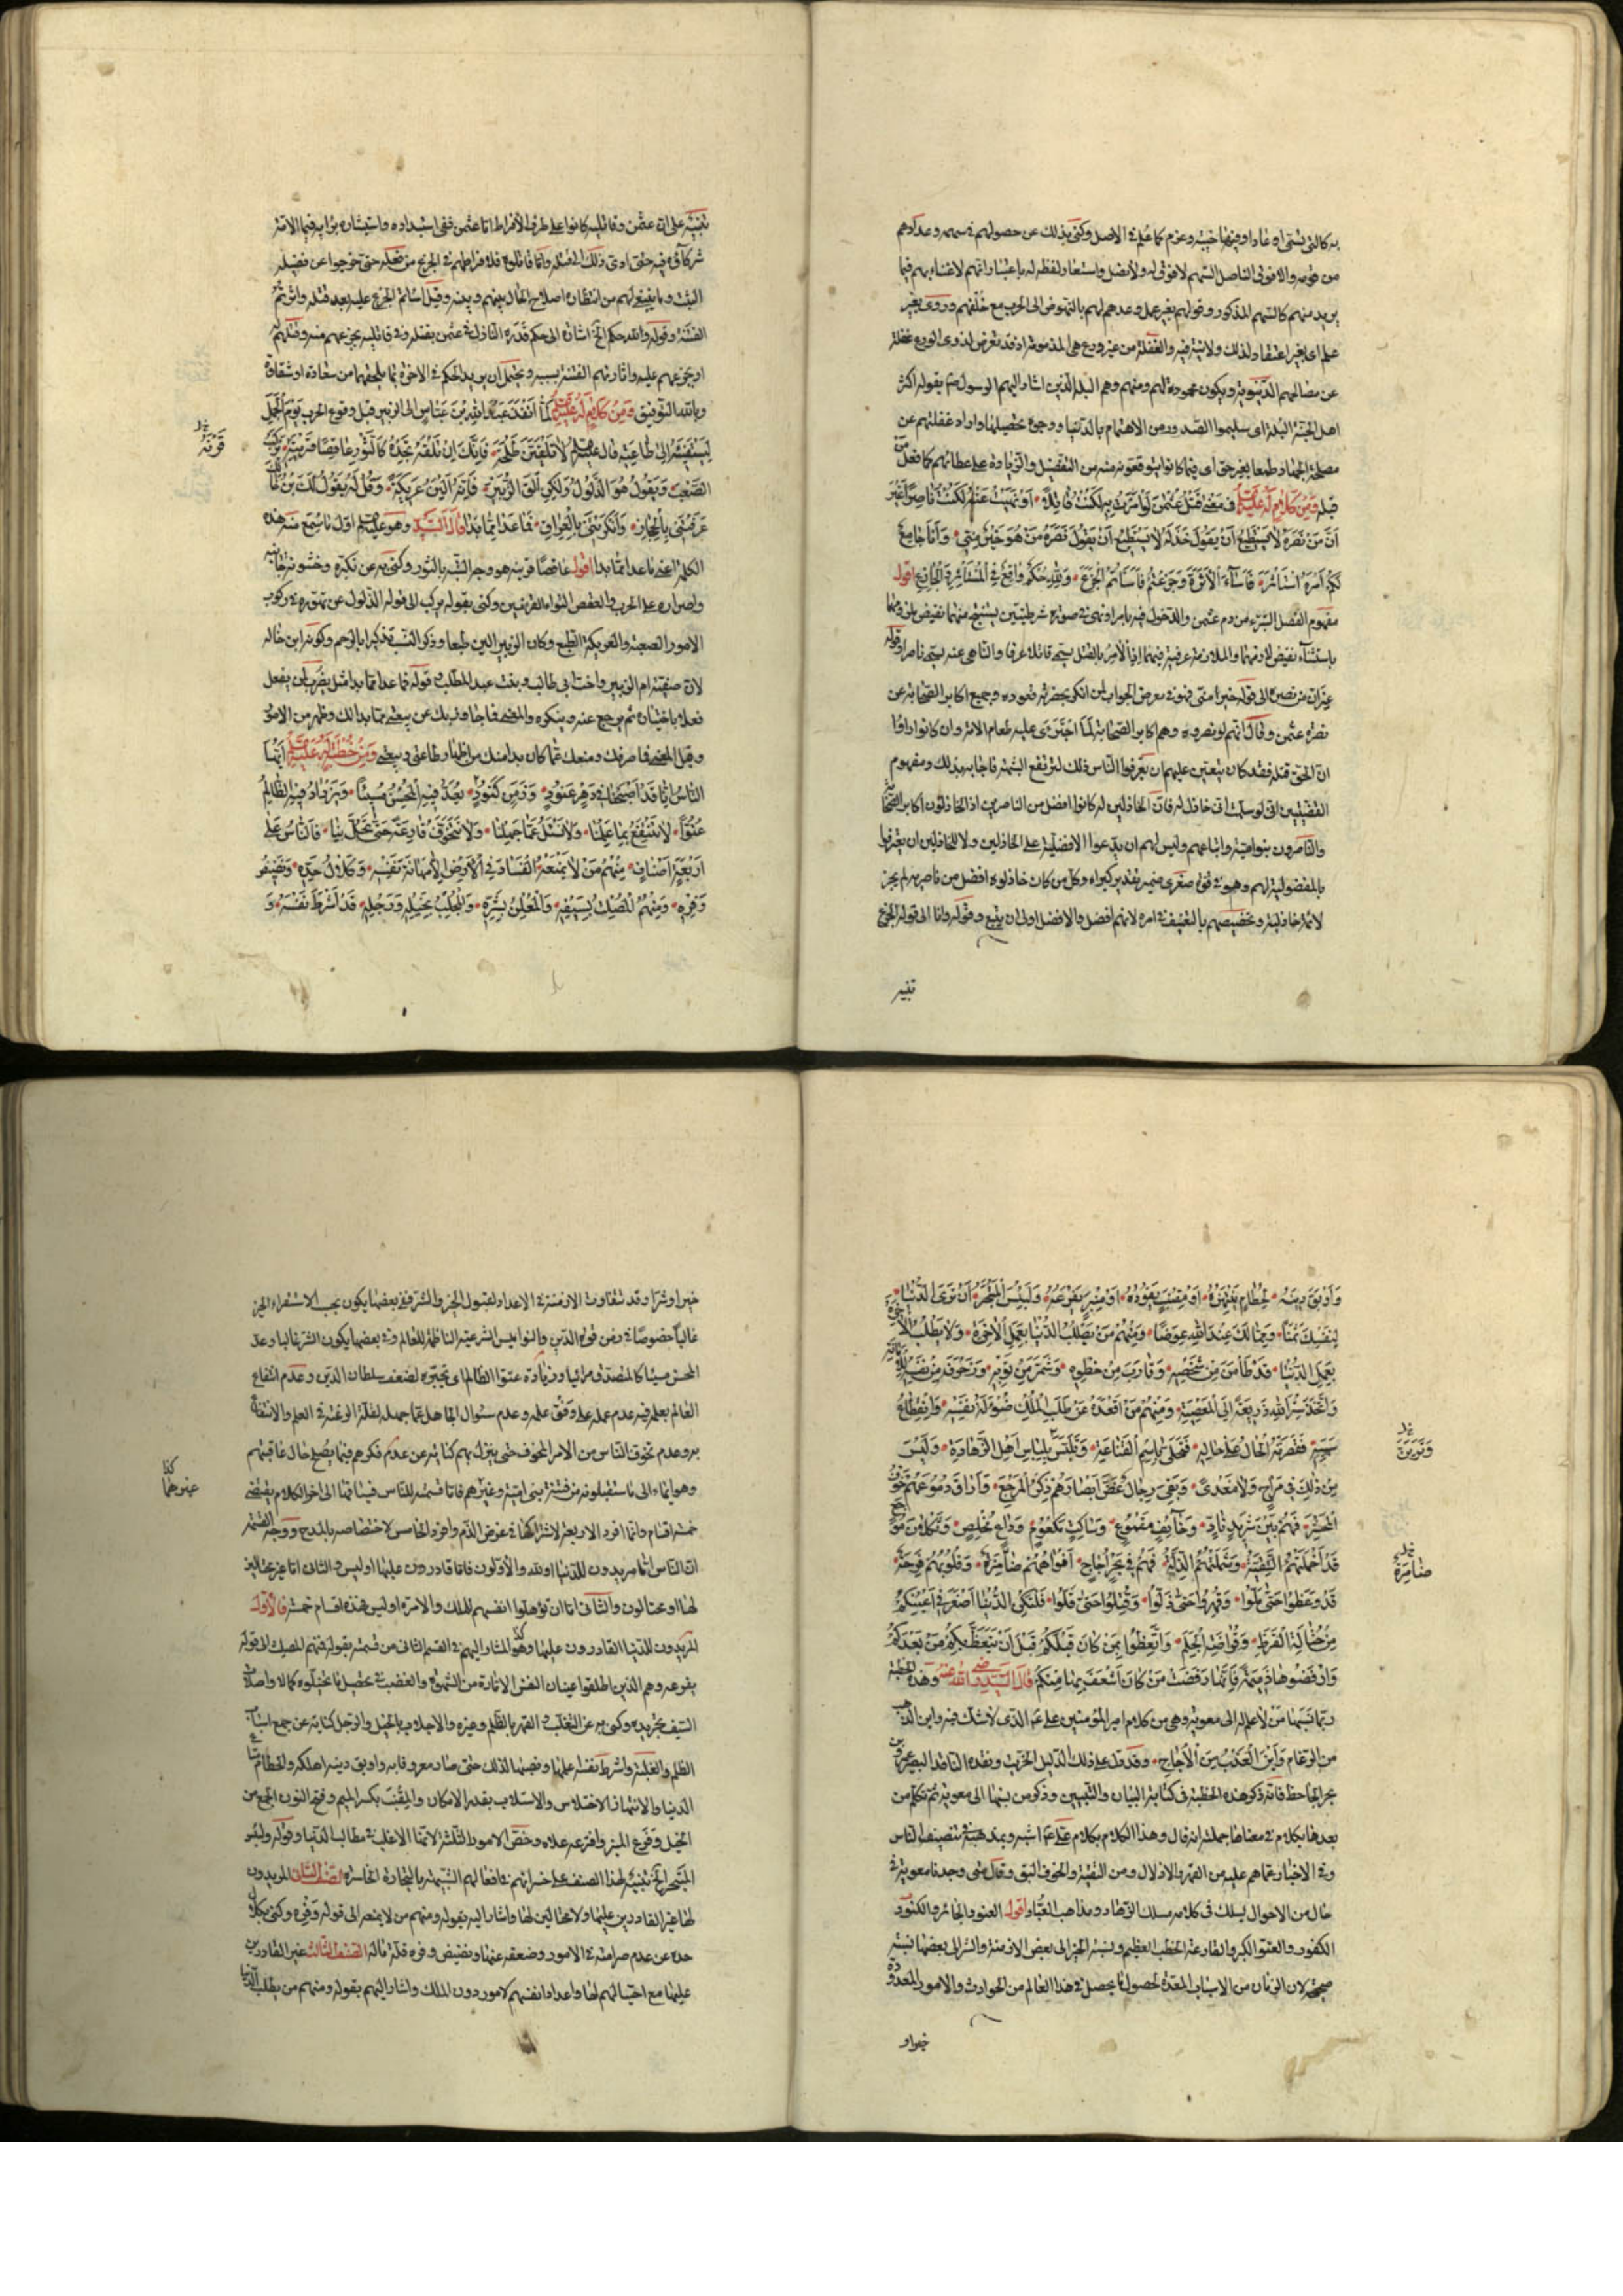 به كالتى يشترى او غادا وفيها خيبته وعزم كما علم فى الاصل وكنى بذلك عن حصولهم فى سهمه وعدادهم
من قومه والافوق الناصل السهم لا فوق له ولا نصل واستعار لفظه له باعتبار انهم لا غناء بهم فيما
يريد منهم كالسهم المذكور وقولهم بغير عمل وعدهم لهم بالنهوض الى الحرب مع خلفهم وروى بغير
علم اى بغير اعتقاد لذلك ولا نية فيه والغفلة من غير ورع هى المذمومة اذ قد تعرض لذوى الورع غفلة
عن مصالحهم الدنيوية ويكون محمودة لهم ومنهم وهم البله الذين اشار اليهم الرسول بقوله اكثر
اهل الجنة البله اى سليموا الصدور من الاهتمام بالدنيا ووجوه تحصيلها واراد غفلتهم عن
مصلحة الجهاد وطمعا بغير حق اى فيما كانوا يتوقعونه منه من التفضيل والزيادة على عطائهم كما فعل من
قبله ومن كلام له عليه السلم فى معنى قتل عثمن لو امرت به لكنت قاتلا • او نهيت عنه لكنت ناصرا غير
ان من نصره لا يستطيع ان يقول خذله لا يستطيع ان يقول نصره من هو خير منى • وانا جامع
لكم امره استأثر فاساء الاثرة وجزعتم فاساتم الجزع • ولله حكم واقع فى المستأثر والجازع اقول
مفهوم الفصل التبرء من دم عثمن والدخول فيه بامر او نهى فى صورة شرطيتين يستنتج منهما نقيض ملزومهما
باستثناء نقيض لازمهما والملازمة عرفية فيهما اذ الآمر بالقتل يسمى قاتلا عرفا والناهى عنه يسمى ناصرا وقوله
غير ان من نصره الى قوله خير منى فهو فى معرض الجواب لمن انكر بحضرته قعوده وجميع اكابر الصحابة عن
نصرة عثمن وقال انهم لو نصروه وهم اكابر الصحابة لما اجترى عليه طغام الامة وان كانوا راوا
ان الحق قتله فقد كان يتعين عليهم ان يعرفوا الناس ذلك لترتفع الشبهة فاجابه بذلك ومفهوم
القضيتين انى لو سلمت انى خاذل له فان الخاذلين له كانوا افضل من الناصرين اذ الخاذلون اكابر الصحابة
والناصرون بنو امية واتباعهم وليس لهم ان يدعوا الافضلية على الخاذلين ولا للخاذلين ان يعترفوا
بالمفضولية لهم وهو فى قوة صغرى ضمير تقدير كبراه وكل من كان خاذلوه افضل من ناصريه لم يجز
لائمة خاذليه وتخصيصهم بالتعنيف فى امره لانهم افضل والافضل اولى ان يتبع وقوله وانا الى قوله الجزع
تنبيه
تنبيه على ان عثمن وقاتليه كانوا على طرف الافراط اما عثمن ففى استبداده واستيثاره برايه فيما الامة
شركاؤه فيه حتى ادى ذلك الى قتله واما قاتلوه فلافراطهم فى الجزع من فعله حتى خرجوا عن فضيلة
التثبت وما ينبغى لهم من انتظار اصلاح الحال بينهم وبينه وقيل اساتم الجزع عليه بعد قتله واثرتم
الفتنة وقوله ولله حكم الخ اشارة الى حكم قدره النازل فى عثمن بقتله وفى قاتليه بجزعهم منه وقتلهم له
او جزعهم عليه واثارتهم الفتنة بسببه ويحتمل ان يريد الحكم فى الاخرة بما يلحقهما من سعادة او شقاوة
وبالله التوفيق ومن كلام له عليه السلم لما انفذ عبد الله بن عباس الى الزبير قبل وقوع الحرب يوم الجمل
ليستفيئه الى طاعته قال عليه السلم لا تلقين طلحة • فانك ان تلقه تجده كالثور عاقصا قرنيه • يركب
الصعب • ويقول هو الذلول ولكن الق الزبير • فانه الين عريكة • وقل له يقول لك ابن خالك
عرفتنى بالحجاز • وانكرتنى بالعراق • فما عدا مما بدا قال السيد وهو عليه السلم اول من سمع منه هذه
الكلمة اعنى ما عدا مما بدا اقول عاقصا قرنيه هو وجه الشبه بالثور وكنى به عن تكبره وخشونة جانبه
واصراره على الحرب والعقص التواء القرنين وكنى بقوله يركب الى قوله الذلول عن تهوره فى ركوب
الامور الصعبة والعريكة الطبع وكان الزبير الين طبعا وذكر النسب تذكيرا بالرحم وكونه ابن خاله
لان صفية ام الزبير واخت ابى طالب وبنت عبد المطلب وقوله فما عدا مما بدا مثل يضرب لمن يفعل
فعلا باختياره ثم يرجع عنه وينكره والمعنى فما جاوز بك عن بيعتى مما بدا لك وظهر من الامور
وقيل المعنى فما صرفك ومنعك عما كان بدا منك من اظهار طاعتى وبيعتى ومن خطبة له عليه السلم ايها
الناس انا قد اصبحنا فى دهر عنود • وزمن كنود • يعد فيه المحسن مسيئا • ويزداد فيه الظالم
عتوا • لا ننتفع بما علمنا • ولا نسئل عما جهلنا • ولا نتخوف قارعة حتى تحل بنا • فالناس على
اربعة اصناف • منهم من لا يمنعه الفساد فى الارض الا مهانة نفسه • وكلال حده • ونضيض
وفره • ومنهم المصلت لسيفه • والمعلن بشره • والمجلب بخيله ورجله • قد اشرط نفسه • و
واوبق دينه • لحطام ينتهزه او مقنب يقوده • او منبر يفرعه • ولبئس المتجر ان ترى الدنيا •
لنفسك ثمنا • ومما لك عند الله عوضا • ومنهم من يطلب الدنيا بعمل الاخرة • ولا يطلب الاخرة
بعمل الدنيا • قد طأمن من شخصه • وقارب من خطوه • وشمر من ثوبه • وزخرف من نفسه للامانة
واتخذ ستر الله ذريعة الى المعصية • ومنهم من اقعده عن طلب الملك ضؤلة نفسه • وانقطاع
سببه • فقصرته الحال على حاله • فتحلى باسم القناعة • وتلبس بلباس اهل الزهادة • وليس
من ذلك فى مراح ولا مغدى • وبقى رجال غض ابصارهم ذكر المرجع • واراق دموعهم خوف
المحشر • فهم بين شريد ناد • وخائف مقموع • وساكت مكعوم • وداع مخلص • وثكلان موجع
قد اخملتهم التقية • وشملتهم الذلة • فهم فى بحر اجاج • افواههم ضامزة • وقلوبهم قرحة •
قد وعظوا حتى ملوا • وقهروا حتى ذلوا • وقتلوا حتى قلوا • فلتكن الدنيا اصغر فى اعينكم
من حثالة القرظ • وقراضة الجلم • واتعظوا بمن كان قبلكم قبل ان يتعظ بكم من بعدكم
وارفضوها ذميمة فانها رفضت من كان اشغف بها منكم قال السيد رضى الله عنه وهذه الخطبة
ربما نسبها من لا علم له الى معوية وهى من كلام امير المؤمنين على عم الذى لا شك فيه واين الذهب
من الرغام واين العذب من الاجاج • وقد دل على ذلك الدليل الخريت ونقده الناقد البصير عمرو بن
بحر الجاحظ فانه ذكر هذه الخطبة فى كتاب البيان والتبيين وذكر من نسبها الى معوية ثم تكلم من
بعدها بكلام فى معناها جملته انه قال وهذا الكلام بكلام على عم اشبه وبمذهبه فى تصنيف الناس
وفى الاخبار عما هم عليه من القهر والاذلال ومن التقية والخوف اليق وقال متى وجدنا معوية فى
حال من الاحوال يسلك فى كلامه مسلك الزهاد ومذاهب العباد اقول العنود الجائر والكنود
الكفور والعتو الكبر والقارعة الخطب العظيم ونسبة الخير الى بعض الازمنة والشر الى بعضها نسبة
صحيحة لان الزمان من الاسباب المعدة لحصول ما يحصل فى هذا العالم من الحوادث والامور المعدودة
خيرا و
خيرا وشرا وقد تتفاوت الازمنة فى الاعداد لقبول الخير والشر ففى بعضها يكون بحسب الاستقراء الخير
غالبا خصوصا فى زمن قوة الدين والنواميس الشرعية الناظمة للعالم وفى بعضها يكون الشر غالبا وعد
المحسن مسيئا كالمتصدق مرائيا وزيادة عتو الظالم اى تجبره لضعف سلطان الدين وعدم انتفاع
العالم بعلمه فيه عدم عمله على وفق علمه وعدم سئوال الجاهل عما جهله لقلة الرغبة فى العلم والانتفاع
به وعدم تخوف الناس من الامر المخوف حتى ينزل بهم كناية عن عدم فكرهم فيما يصلح حال عاقبتهم
وهو ايماء الى ما يستقبلونه من فتنة بنى امية وغيرهم فاما قسمته للناس فيشاقها الى اخر الكلام يقتضى
خمسة اقسام وانما افرد الاربعة لاشتراكها فى غرض الذم وافرد الخامس لاختصاصه بالمدح ووجه القسمة
ان الناس اما مريدون للدنيا او لله والاولون فاما قادرون عليها او ليس والثانى اما غير محتالين
لها او محتالون والثانى اما ان يؤهلوا انفسهم للملك والامرة او ليس فهذه اقسام خمسة فالاول
المريدون للدنيا القادرون عليها وهو المشار اليهم فى القسم الثانى من قسمته بقوله فمنهم المصلت الى قوله
يفرعه وهم الذين اطلقوا عنان النفس الامارة من الشهوة والغضب فى تحصيل ما تخيلوه كمالا واصلات
السيف تجريده وكنى به عن التغلب والقهر بالظلم وغيره والاجلاب بالخيل والرجل كناية عن جمع اسباب
الظلم والغلبة واشرط نفسه علمها ونصبها لذلك حتى صار معروفا به واوبق دينه اهلكه والحطام متاع
الدنيا والانتهاز الاختلاس والاستلاب بقدر الامكان والمقنب بكسر الميم وفتح النون الجمع من
الخيل وفرع المنبر وافترعه علاه وخص الامور الثلثة لانها الاغلب فى مطالب الدنيا وقوله ولبئس
المتجر الخ تنبيه لهذا الصنف على خسرانهم فى افعالهم الشبيهة بالتجارة الخاسرة الصنف الثانى المريدون
لها غير القادرين عليها ولا محتالين لها واشار اليه بقوله ومنهم من لا يمنعه الى قوله وفره وكنى بكلال
حده عن عدم صرامته فى الامور وضعفه عنها ونضيض وفره قلة ماله الصنف الثالث غير القادرين
عليها مع احتيالهم لها واعداد انفسهم لامور دون الملك واشار اليهم بقوله ومنهم من يطلب الدنيا